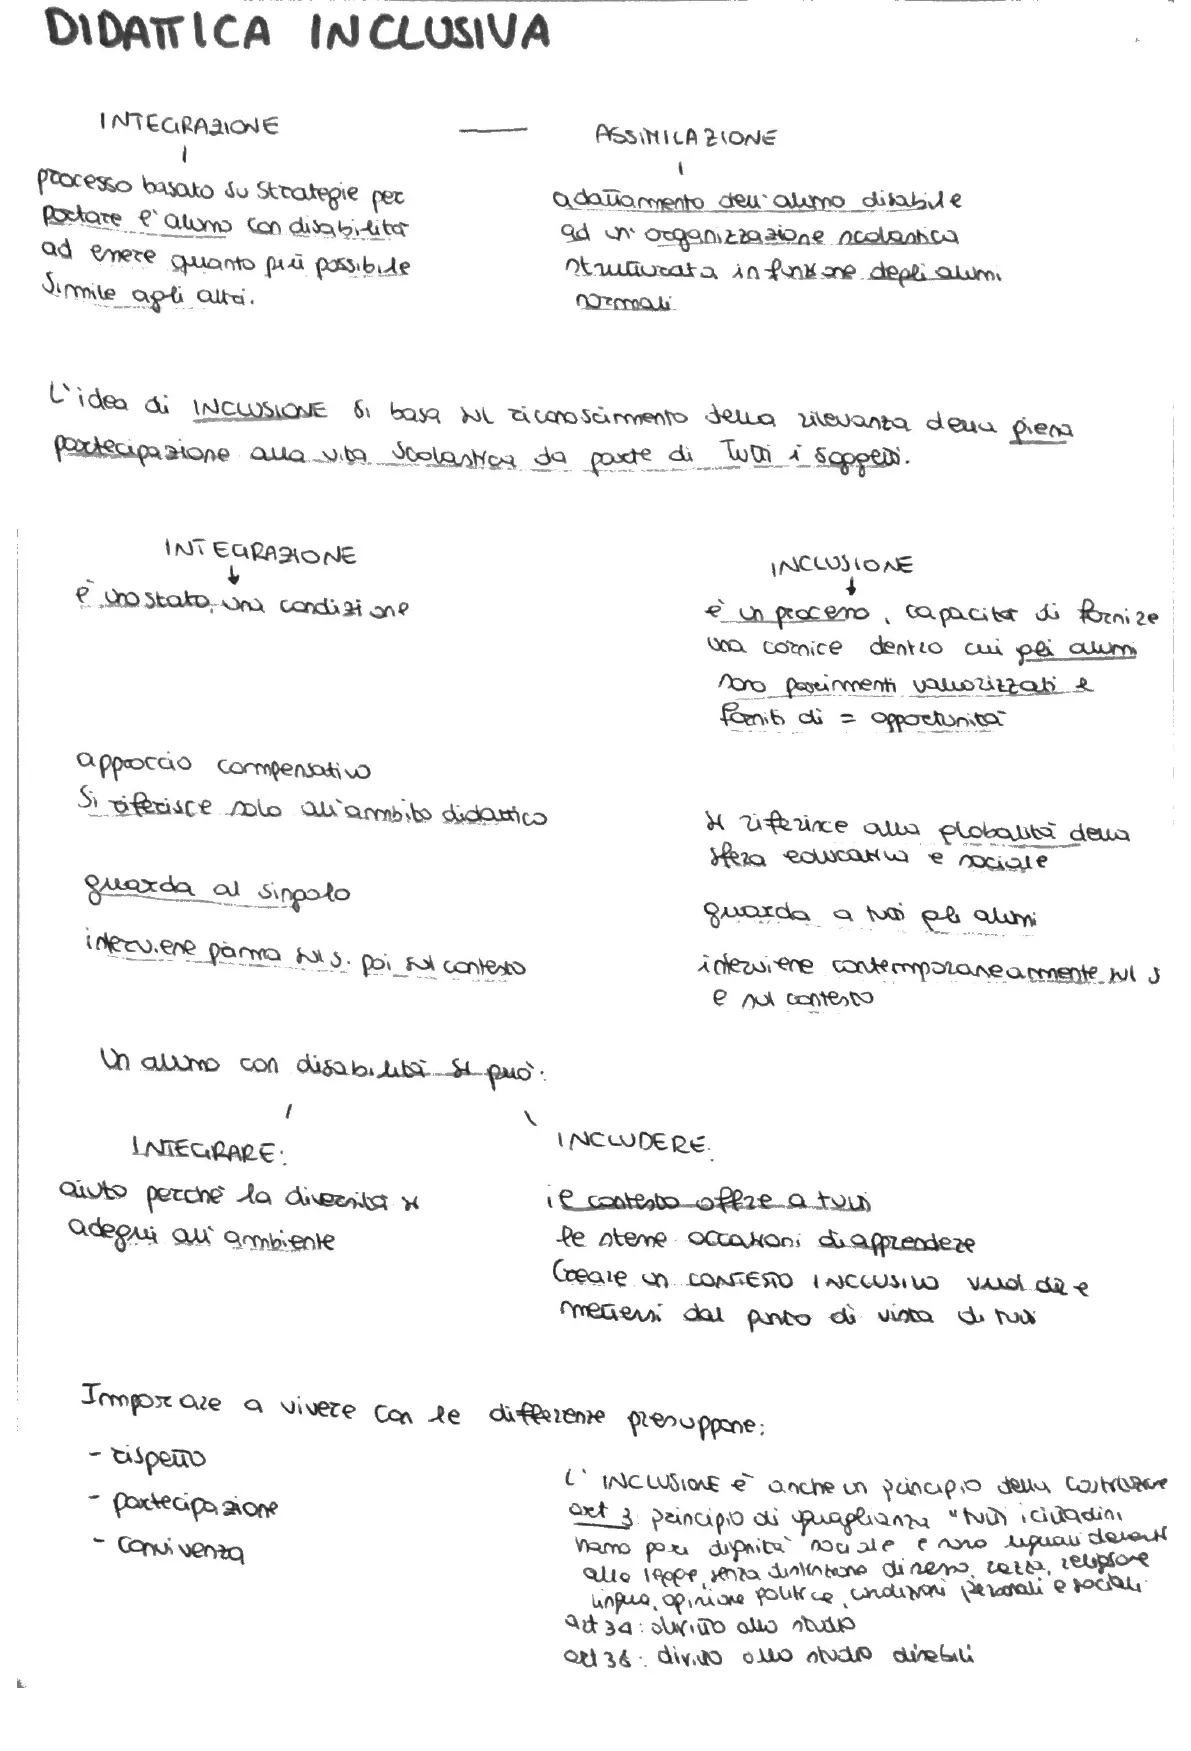 DIDATTICA INCLUSIVA
INTEGRAZIONE — ASSIMILAZIONE
processo basato su strategie per
portare l'alunno con disabilità
ad essere quanto più possibile
simile agli altri.
adattamento dell'alunno disabile
ad un'organizzazione scolastica
strutturata in funzione degli alunni
normali
L'idea di INCLUSIONE si basa sul riconoscimento della rilevanza della piena
partecipazione alla vita scolastica da parte di tutti i soggetti.
INTEGRAZIONE
è uno stato, una condizione
INCLUSIONE
è un processo, capacità di fornire
una cornice dentro cui gli alunni
sono parimenti valorizzati e
forniti di = opportunità
approccio compensativo
Si riferisce solo all'ambito didattico
si riferisce alla globalità della
sfera educativa e sociale
guarda al singolo
guarda a tutti gli alunni
interviene prima sul s. poi sul contesto
interviene contemporaneamente sul s
e sul contesto
Un alunno con disabilità si può:
INTEGRARE:
aiuto perché la diversità si
adegui all'ambiente
INCLUDERE:
il contesto offre a tutti
le stesse occasioni di apprendere
Creare un CONTESTO INCLUSIVO vuol dire
mettersi dal punto di vista di tutti
Imparare a vivere con le differenze presuppone:
- rispetto
- partecipazione
- convivenza
L'INCLUSIONE è anche un principio della Costituzione
art 3 principio di uguaglianza "tutti i cittadini
hanno pari dignità sociale e sono uguali davanti
alla legge, senza distinzione di sesso, razza, religione
lingua, opinione politica, condizioni personali e sociali
art 34: diritto allo studio
art 38: diritto allo studio disabili